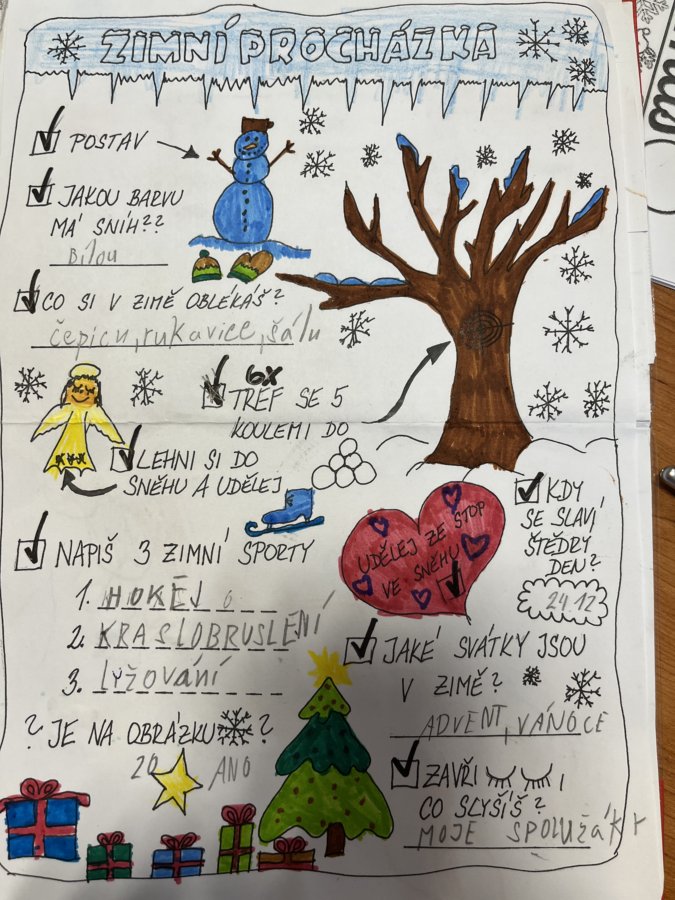 ZIMNÍ PROCHÁZKA
POSTAV
JAKOU BARVU
MÁ SNÍH??
Bílou
CO SI V ZIMĚ OBLÉKÁŠ?
čepicu, rukavice, šálu
6X
TREF SE 5
KOULEMI DO
LEHNI SI DO
SNĚHU A UDĚLEJ
KDY
SE SLAVÍ
ŠTĚDRÝ
DEN?
24.12
UDĚLEJ ZE STOP
VE SNĚHU
NAPIŠ 3 ZIMNÍ SPORTY
1. HOKEJ
2. KRASLOBRUSLENÍ
3. lyžování
JAKÉ SVÁTKY JSOU
V ZIMĚ?
ADVENT, VÁNOCE
? JE NA OBRÁZKU ?
20 ANO
ZAVŘI ,
CO SLYŠÍŠ?
MOJE SPOLUŽÁKY